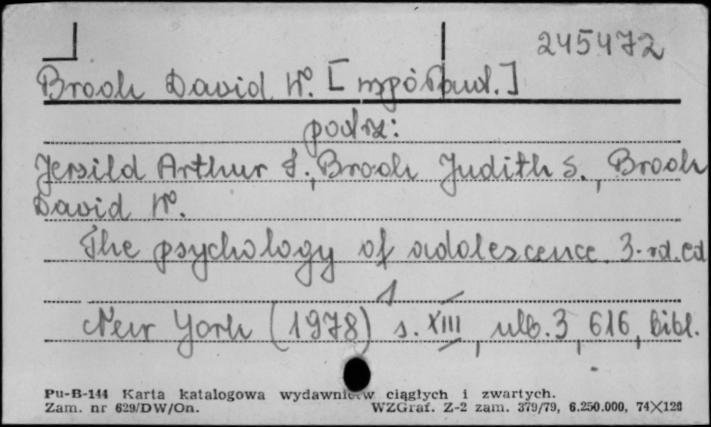 245472
Brook David W. [współaut.]
podrz:
Jersild Arthur T., Brook Judith S., Brook
David W.
The psychology of adolescence. 3-rd. ed
New York (1978) s. XIII, nlb. 3, 616, bibl.
Pu-B-144 Karta katalogowa wydawnictw ciągłych i zwartych.
Zam. nr 629/DW/On. WZGraf. Z-2 zam. 379/79, 6.250.000, 74×126